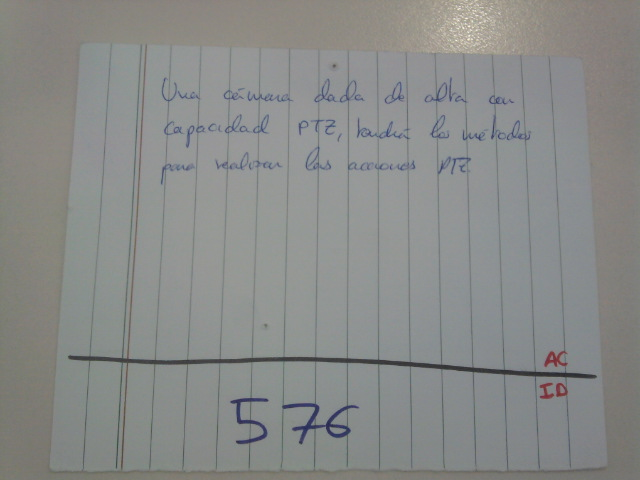 Una cámara dada de alta con
capacidad PTZ, tendrá los métodos
para realizar las acciones PTZ
AC
ID
576